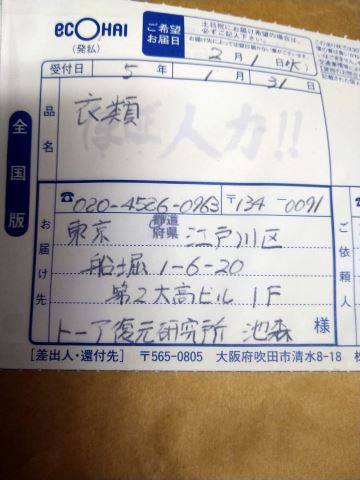 ecOHAI
(発払)
ご希望
お届日
土日祝にお届け希望の場合は、
必ずご記入下さい。
2月1日(水)
受付日 5年 1月 31日
全国版
品名
衣類
ほぼ人力!!
☎ 020-4586-0963 〒134-0091
お届け先
東京 都道府県 江戸川区
船堀 1-6-20
第2大高ビル 1F
トーア復元研究所 池森 様
ご依頼人
[差出人・還付先] 〒565-0805 大阪府吹田市清水8-18